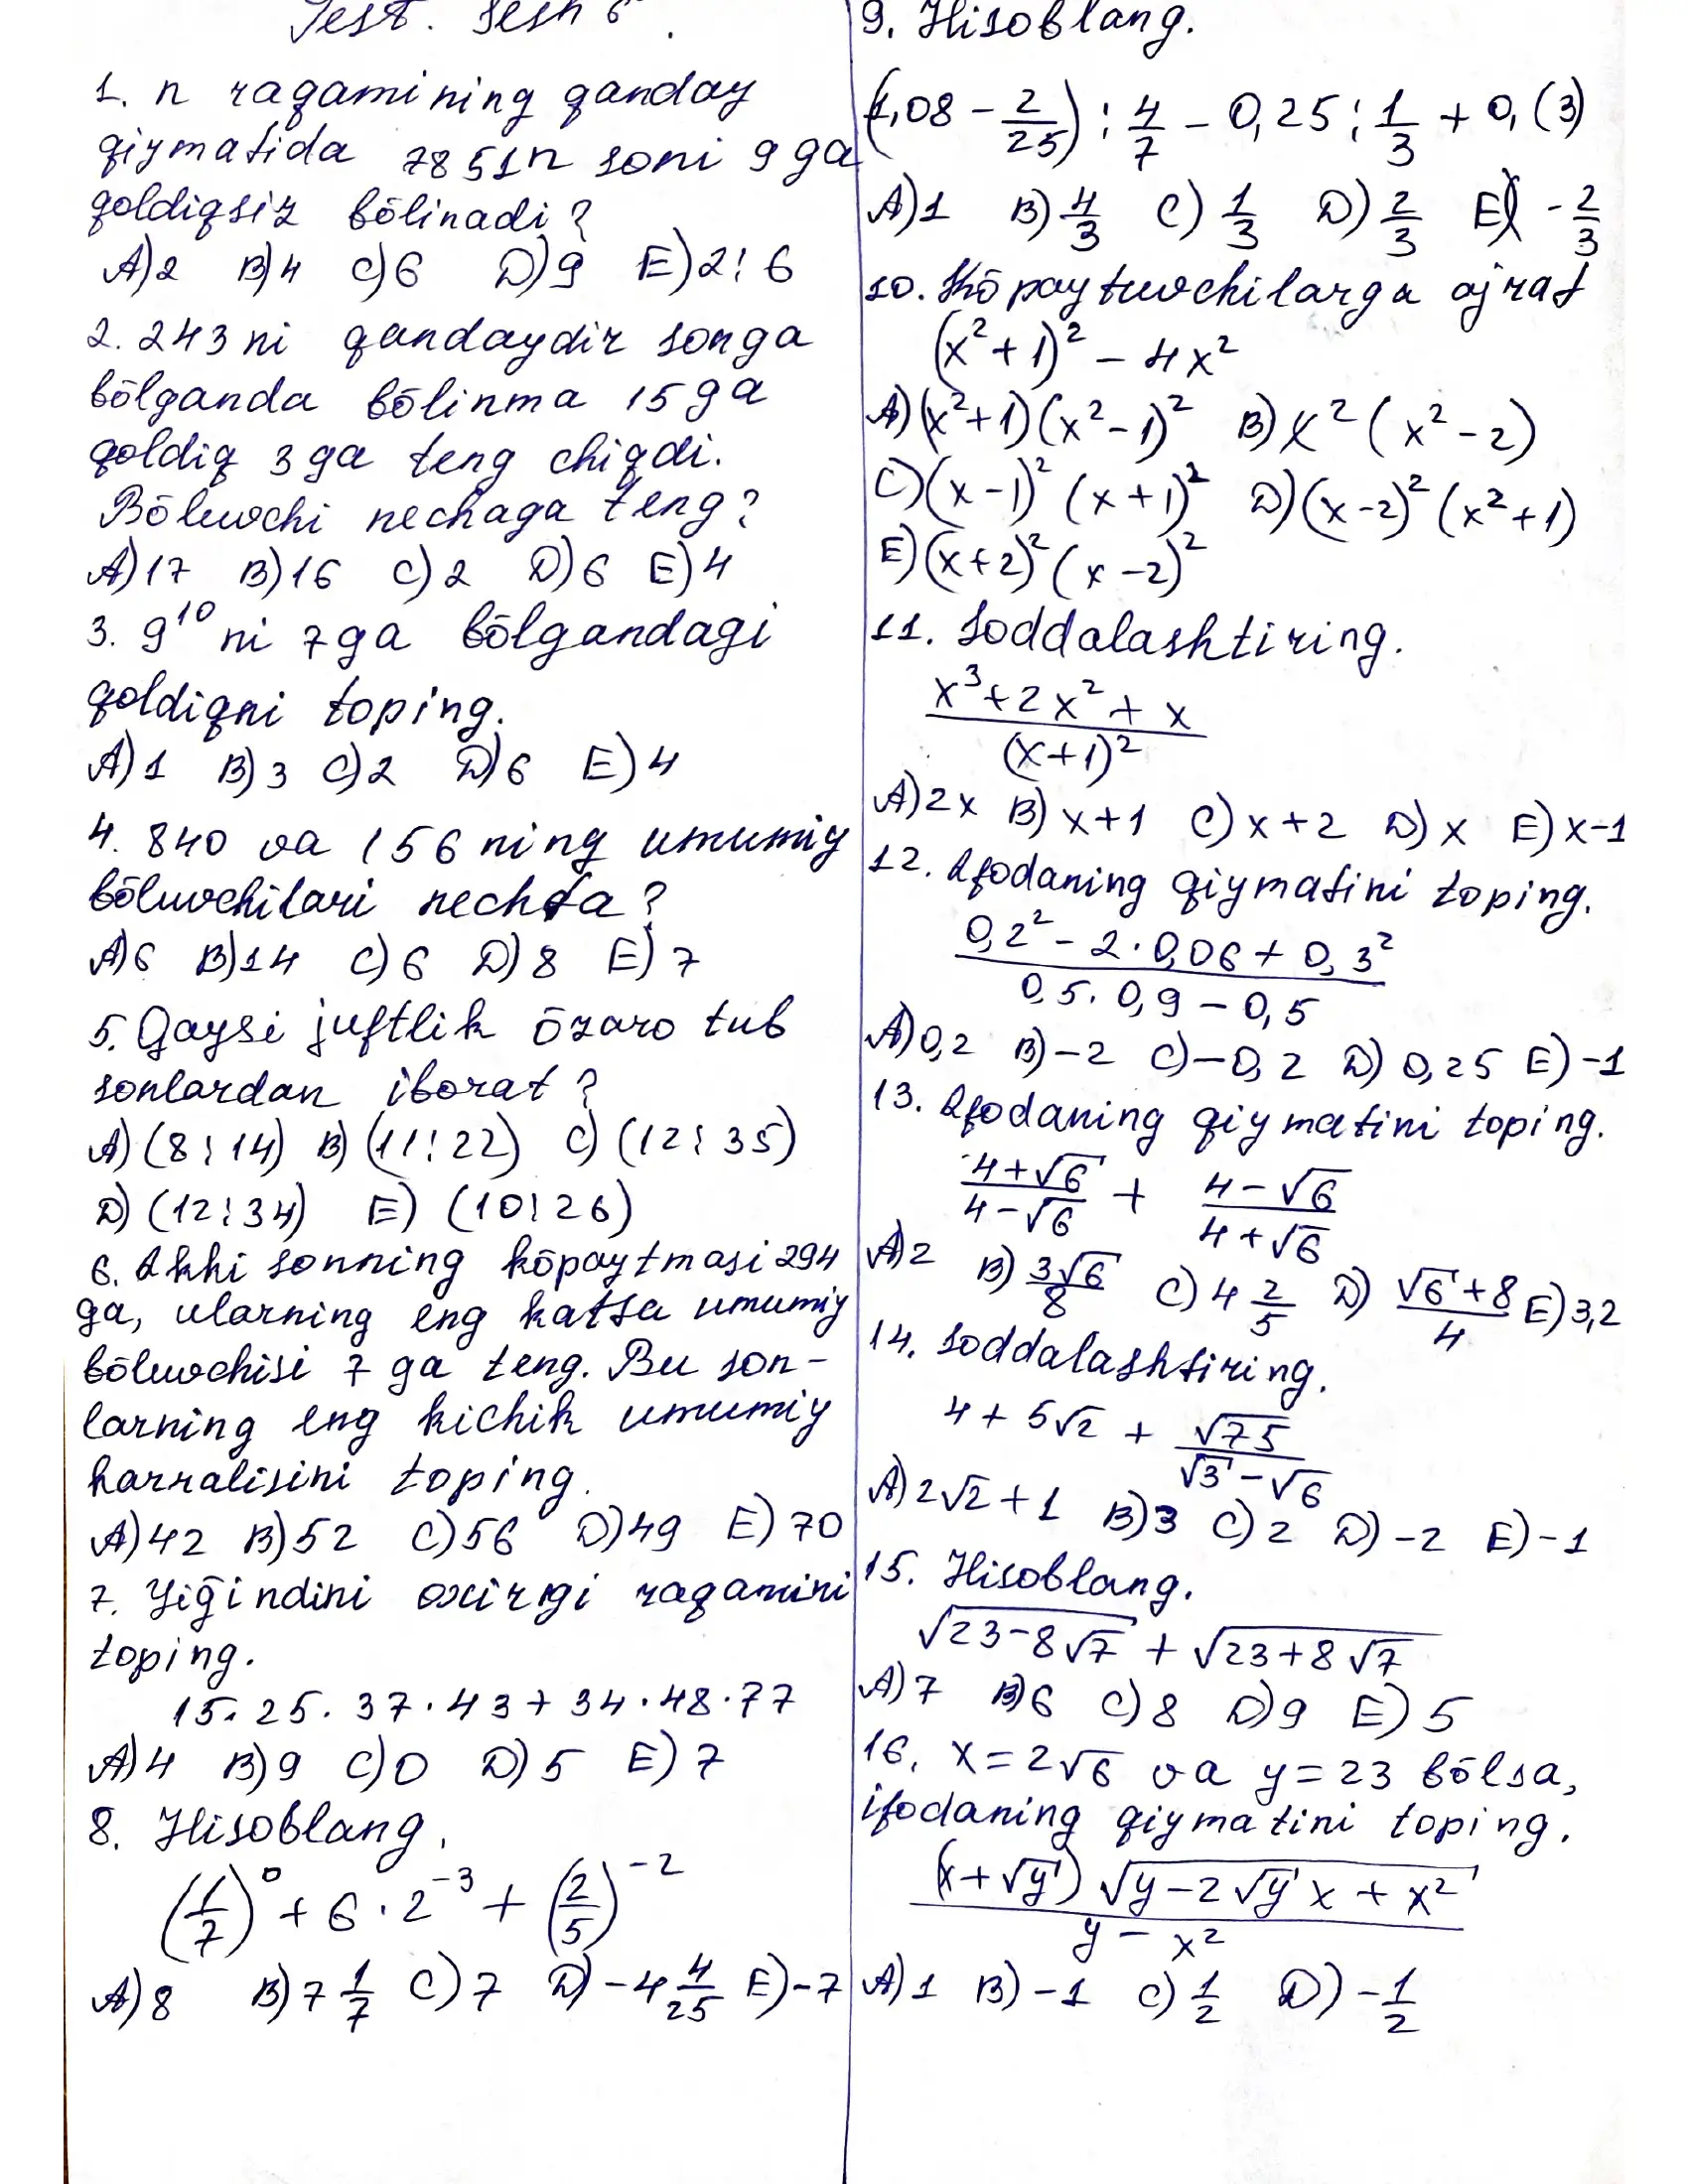 Test. Sesh 6.
1. n raqamining qanday
qiymatida 7851n soni 9 ga
qoldiqsiz bōlinadi?
A) 2 B) 4 C) 6 D) 9 E) 2; 6
2. 243 ni qandaydir songa
bōlganda bōlinma 15 ga
qoldiq 3 ga teng chiqdi.
Bōluvchi nechaga teng?
A) 17 B) 16 C) 2 D) 6 E) 4
3. 9¹⁰ ni 7 ga bōlgandagi
qoldiqni toping.
A) 1 B) 3 C) 2 D) 6 E) 4
4. 840 va 156 ning umumiy
bōluvchilari nechta?
A) 6 B) 14 C) 6 D) 8 E) 7
5. Qaysi juftlik ōzaro tub
sonlardan iborat?
A) (8; 14) B) (11; 22) C) (12; 35)
D) (12; 34) E) (10; 26)
6. Ikki sonning kōpaytmasi 294
ga, ularning eng katta umumiy
bōluvchisi 7 ga teng. Bu son-
larning eng kichik umumiy
karralisini toping.
A) 42 B) 52 C) 56 D) 49 E) 70
7. Yiğindini oxirgi raqamini
toping.
15 · 25 · 37 · 43 + 34 · 48 · 77
A) 4 B) 9 C) 0 D) 5 E) 7
8. Hisoblang.
(1/7)⁰ + 6 · 2⁻³ + (2/5)⁻²
A) 8 B) 7 1/7 C) 7 D) -4 4/25 E) -7
9. Hisoblang.
(1,08 - 2/25) : 4/7 - 0,25 : 1/3 + 0,(3)
A) 1 B) 4/3 C) 1/3 D) 2/3 E) -2/3
10. Kōpaytuvchilarga ajrat
(x² + 1)² - 4x²
A) (x² + 1)(x² - 1)² B) x²(x² - 2)
C) (x - 1)² (x + 1)² D) (x - 2)² (x² + 1)
E) (x + 2)² (x - 2)²
11. Soddalashtiring.
x³ + 2x² + x
(x + 1)²
A) 2x B) x + 1 C) x + 2 D) x E) x - 1
12. Ifodaning qiymatini toping.
0,2² - 2 · 0,06 + 0,3²
0,5 · 0,9 - 0,5
A) 0,2 B) -2 C) -0,2 D) 0,25 E) -1
13. Ifodaning qiymatini toping.
(4+√6)/(4-√6) + (4-√6)/(4+√6)
A) 2 B) 3√6/8 C) 4 2/5 D) (√6+8)/4 E) 3,2
14. Soddalashtiring.
4 + 5√2 + √75/(√3-√6)
A) 2√2 + 1 B) 3 C) 2 D) -2 E) -1
15. Hisoblang.
√(23-8√7) + √(23+8√7)
A) 7 B) 6 C) 8 D) 9 E) 5
16. x = 2√6 va y = 23 bōlsa,
ifodaning qiymatini toping.
(x + √y) √(y - 2√y x + x²)
y - x²
A) 1 B) -1 C) 1/2 D) -1/2